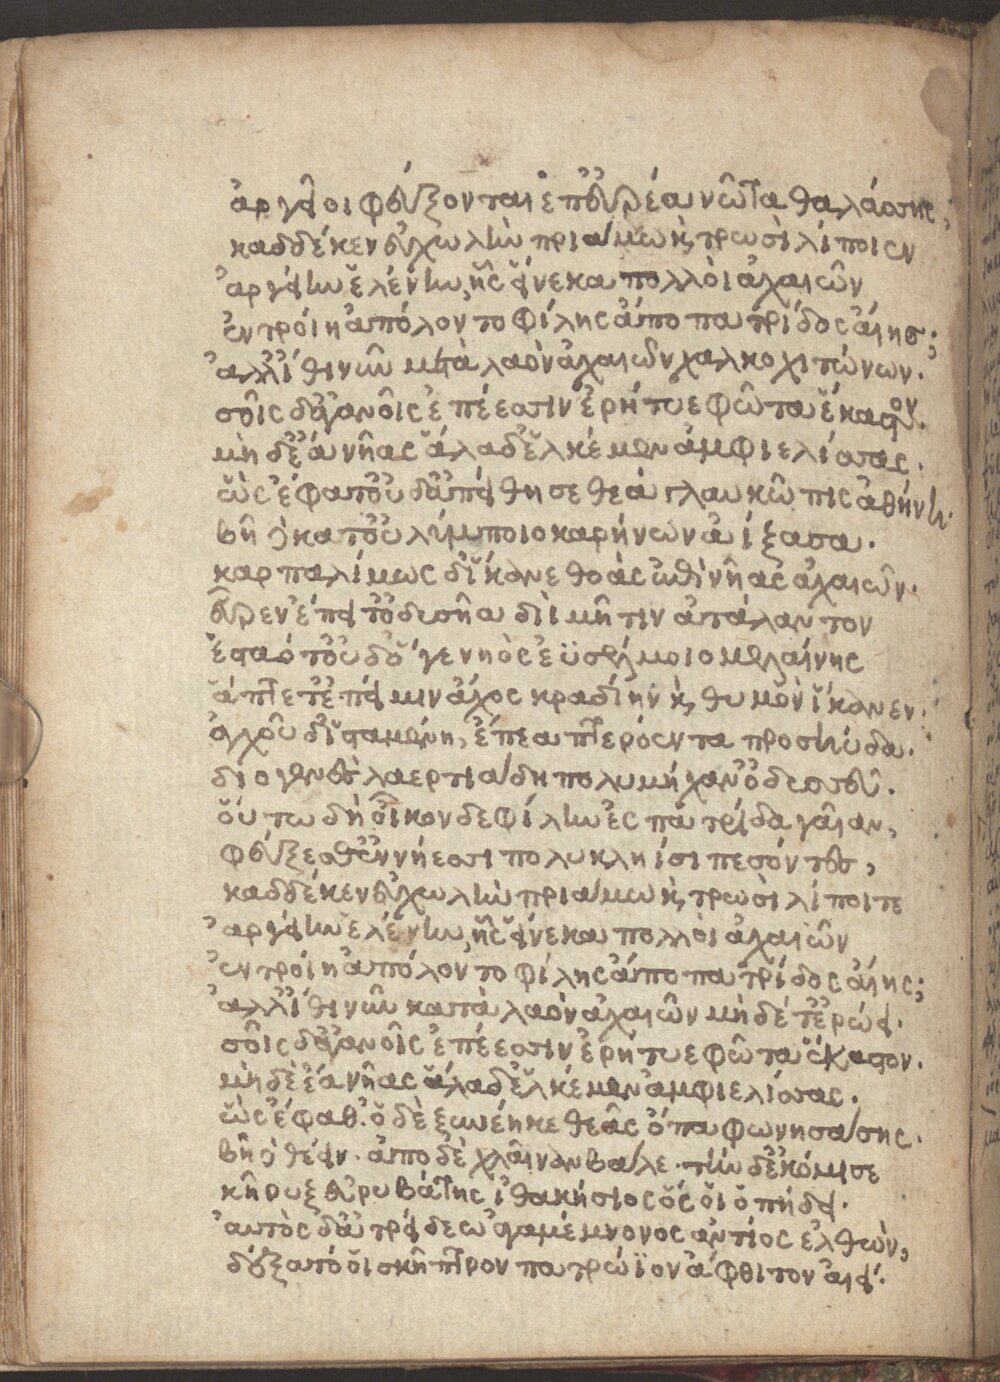 ἀργεῖοι φεύξονται ἐπ' εὐρέα νῶτα θαλάσσης,
καδδέκεν εὐχωλὴν πριάμω κ, τρωσὶ λίποιεν
ἀργείην ἑλένην, ἧς εἵνεκα πολλοὶ ἀχαιῶν
ἐν τροίη ἀπόλοντο φίλης ἄπο πατρίδος αἴησ;
ἀλλ' ἴθι νῦν μετὰ λαὸν ἀχαιῶν χαλκοχιτώνων.
σοῖς δ' ἀγανοῖς ἐπέεσσιν ἐρήτυε φῶτα ἕκαστον.
μὴ δὲ ἔα νῆας ἅλαδ' ἑλκέμεν ἀμφιελίσσας.
ὣς ἔφατ' οὐδ' ἀπείθησε θεὰ γλαυκῶπις ἀθήνη.
βῆ δὲ κατ' οὐλύμποιο καρήνων ἀΐξασα.
καρπαλίμως δ' ἵκανε θοὰς ἐπὶ νῆας ἀχαιῶν.
εὗρεν ἔπειτ' ὀδυσῆα διὶ μῆτιν ἀτάλαντον
ἑσταότ' οὐδ' ὅγε νηὸς ἐϋσέλμοιο μελαίνης
ἅπτετ' ἐπεί μιν ἄχος κραδίην κ, θυμὸν ἵκανεν.
ἀγχοῦ δ' ἱσταμένη, ἔπεα πτερόεντα προσηύδα.
διογενὲς λαερτιάδη πολυμήχαν' ὀδυσσεῦ.
οὕτω δὴ οἶκον δε φίλην ἐς πατρίδα γαῖαν,
φεύξεσθ' ἐν νήεσσι πολυκληίσι πεσόντες,
καδδέκεν εὐχωλὴν πριάμω κ, τρωσὶ λίποιτε
ἀργείην ἑλένην, ἧς εἵνεκα πολλοὶ ἀχαιῶν
ἐν τροίη ἀπόλοντο φίλης ἄπο πατρίδος αἴης;
ἀλλ' ἴθι νῦν κατὰ λαὸν ἀχαιῶν μὴ δέ τ' ἐρώει.
σοῖς δ' ἀγανοῖς ἐπέεσσιν ἐρήτυε φῶτα ἕκαστον.
μὴ δὲ ἔα νῆας ἅλαδ' ἑλκέμεν ἀμφιελίσσας.
ὣς ἔφαθ'. ὁ δὲ ξυνέηκε θεᾶς ὄπα φωνησάσης.
βῆ δὲ θέειν. ἀπο δὲ χλαῖναν βάλε. τὴν δ' ἐκόμισε
κῆρυξ εὐρυβάτης ἰθακήσιος ὅς οἱ ὀπήδει.
αὐτὸς δ' ἀτρείδεω ἀγαμέμνονος ἀντίος ἐλθὼν,
δέξατό οἱ σκῆπτρον πατρώϊον ἄφθιτον αἰεί.